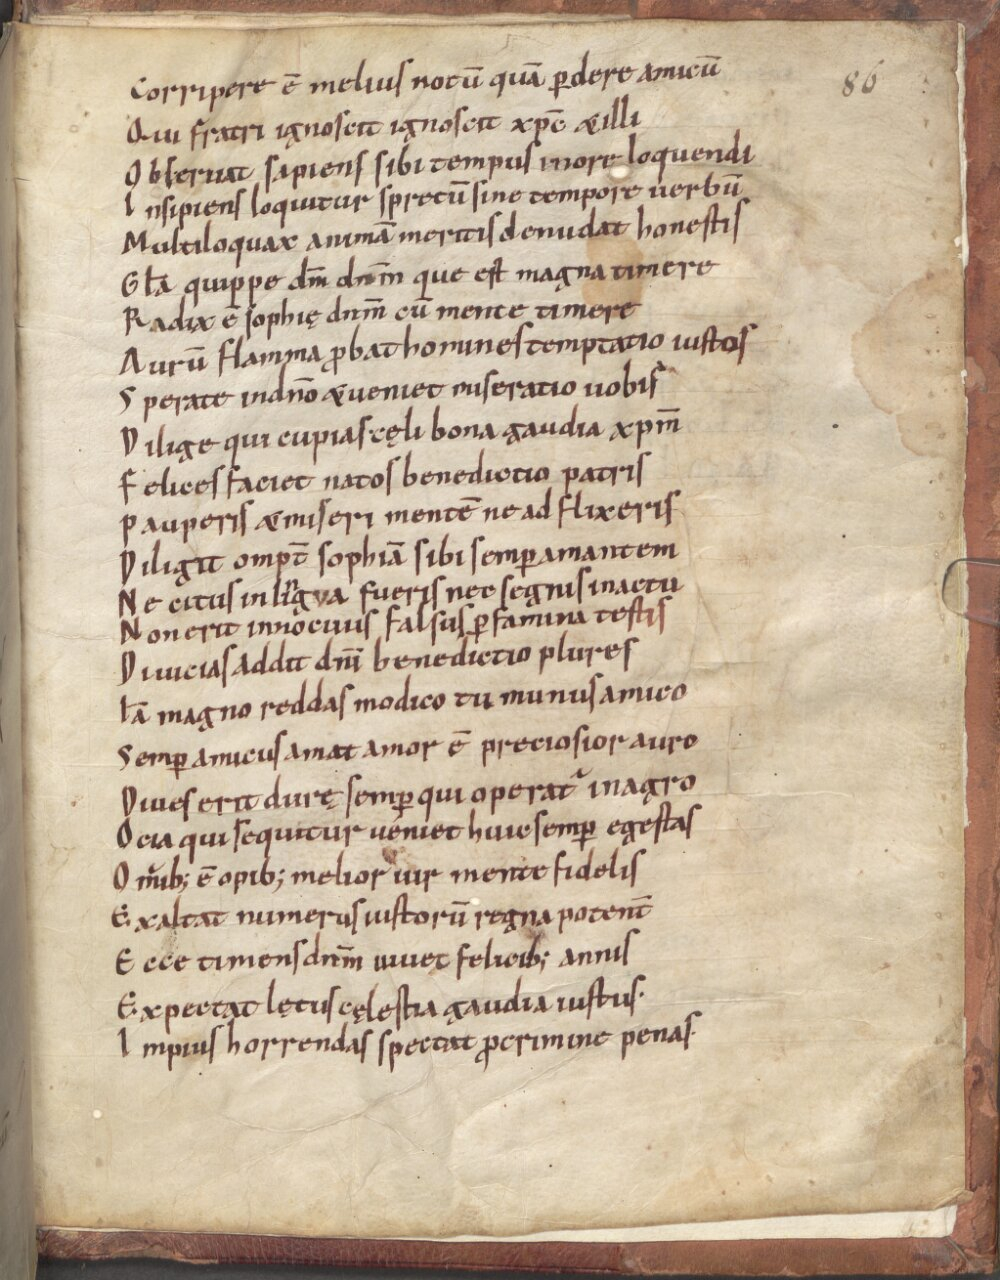 Corripere ē melius notū quā ꝑdere amicū
86
Qui fratri ignoscit ignoscit xp̄c & illi
Obseruat sapiens sibi tempus inore loquendi
Insipiens loquitur spretū sine tempore uerbū
Multiloquax animā meritis denudat honestis
Gl̄a quippe dm̄ dn̄m que est magna timere
Radix ē sophię dnm̄ cū mente timere
Aurū flamma ꝓbat homines temptatio iustos
Sperate indn̄o & ueniet miseratio uobis
Dilige qui cupias cęli bona gaudia xpm̄
Felices faciet natos benedictio patris
Pauperis & miseri mentē ne adflixeris
Diligit omp̄t sophiā sibi semꝑ amantem
Ne citus in lingua fueris nec segnis inactu
Non erit innocuus falsus ꝑ famina testis
Diuicias addit dn̄i benedictio plures
magno reddas modico tu munus amico
Semꝑ amicus amat amor ē preciosior auro
Diues erit durę semꝑ qui operat᷑ inagro
Ocia qui sequitur ueniet huic semꝑ egestas
Om̄ib; ē opib; melior uir mente fidelis
Exaltat numerus iustorū regna potent̄
Ecce timens dnm̄ uiuet felicib; annis
Expectat lętus cęlestia gaudia iustus.
Impius horrendas spectat ꝓ crimine penas.